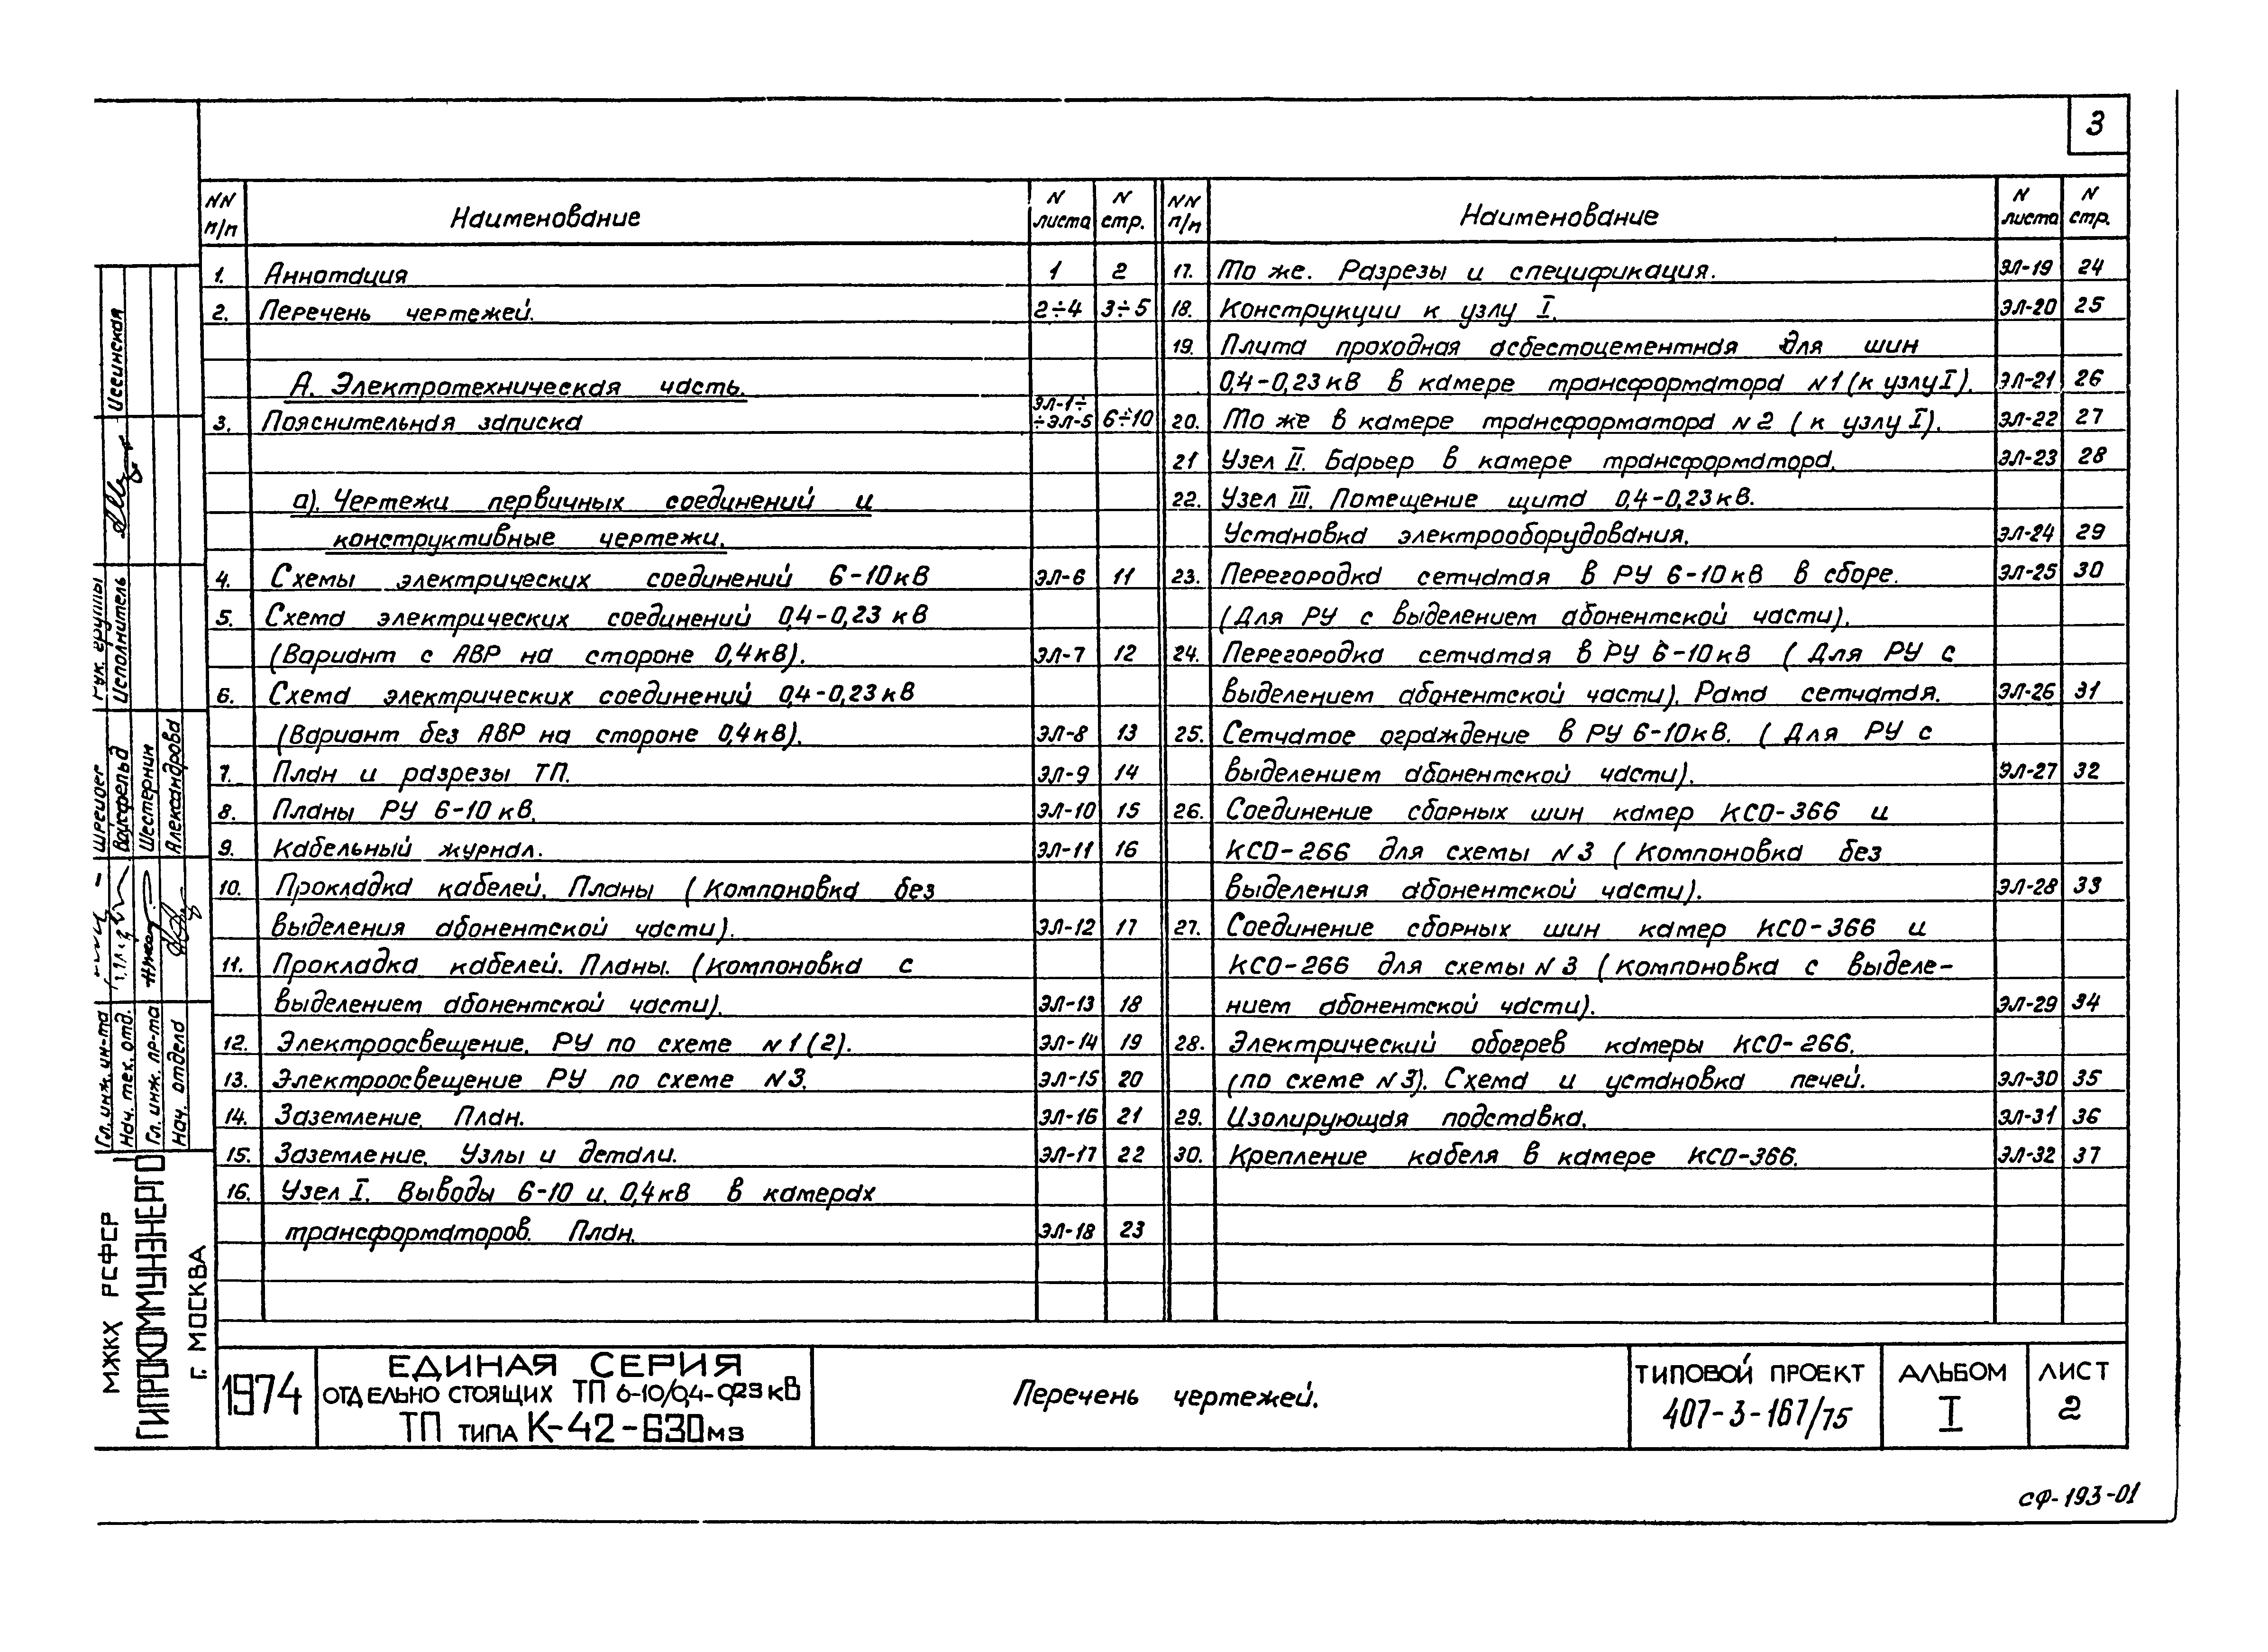 3
NN п/п Наименование N листа N стр.
1. Аннотация 1 2
2. Перечень чертежей. 2÷4 3÷5
А. Электротехническая часть.
3. Пояснительная записка ЭЛ-1÷ ÷ЭЛ-5 6÷10
а). Чертежи первичных соединений и
конструктивные чертежи.
4. Схемы электрических соединений 6-10кВ ЭЛ-6 11
5. Схема электрических соединений 0,4-0,23 кВ
(Вариант с АВР на стороне 0,4кВ). ЭЛ-7 12
6. Схема электрических соединений 0,4-0,23кВ
(Вариант без АВР на стороне 0,4кВ). ЭЛ-8 13
7. План и разрезы ТП. ЭЛ-9 14
8. Планы РУ 6-10 кВ. ЭЛ-10 15
9. Кабельный журнал. ЭЛ-11 16
10. Прокладка кабелей. Планы (Компоновка без
выделения абонентской части). ЭЛ-12 17
11. Прокладка кабелей. Планы. (Компоновка с
выделением абонентской части). ЭЛ-13 18
12. Электроосвещение. РУ по схеме N1(2). ЭЛ-14 19
13. Электроосвещение РУ по схеме N3. ЭЛ-15 20
14. Заземление. План. ЭЛ-16 21
15. Заземление. Узлы и детали. ЭЛ-17 22
16. Узел I. Выводы 6-10 и 0,4кВ в камерах
трансформаторов. План. ЭЛ-18 23
NN п/п Наименование N листа N стр.
17. То же. Разрезы и спецификация. ЭЛ-19 24
18. Конструкции к узлу I. ЭЛ-20 25
19. Плита проходная асбестоцементная для шин
0,4-0,23кВ в камере трансформатора N1(к узлу I). ЭЛ-21 26
20. То же в камере трансформатора N2 (к узлу I). ЭЛ-22 27
21 Узел II. Барьер в камере трансформатора. ЭЛ-23 28
22. Узел III. Помещение щита 0,4-0,23кВ.
Установка электрооборудования. ЭЛ-24 29
23. Перегородка сетчатая в РУ 6-10кВ в сборе. ЭЛ-25 30
(Для РУ с выделением абонентской части).
24. Перегородка сетчатая в РУ 6-10кВ (Для РУ с
выделением абонентской части). Рама сетчатая. ЭЛ-26 31
25. Сетчатое ограждение в РУ 6-10кВ. (Для РУ с
выделением абонентской части). ЭЛ-27 32
26. Соединение сборных шин камер КСО-366 и
КСО-266 для схемы N3 (Компоновка без
выделения абонентской части). ЭЛ-28 33
27. Соединение сборных шин камер КСО-366 и
КСО-266 для схемы N3 (Компоновка с выделе-
нием абонентской части). ЭЛ-29 34
28. Электрический обогрев камеры КСО-266.
(по схеме N3). Схема и установка печей. ЭЛ-30 35
29. Изолирующая подставка. ЭЛ-31 36
30. Крепление кабеля в камере КСО-366. ЭЛ-32 37
Рук. группы
Исполнитель Иссинская
Гл. инж. ин-та Шрейдер
Нач. тех. отд. Ваксфельд
Гл. инж. пр-та Шестернин
Нач. отдела Александрова
МЖКХ РСФСР
ГИПРОКОММУНЭНЕРГО
г. МОСКВА
1974
ЕДИНАЯ СЕРИЯ
ОТДЕЛЬНО СТОЯЩИХ ТП 6-10/0,4-0,23кВ
ТП ТИПА К-42-630м3
Перечень чертежей.
ТИПОВОЙ ПРОЕКТ
407-3-167/75
АЛЬБОМ
I
ЛИСТ
2
СФ-193-01